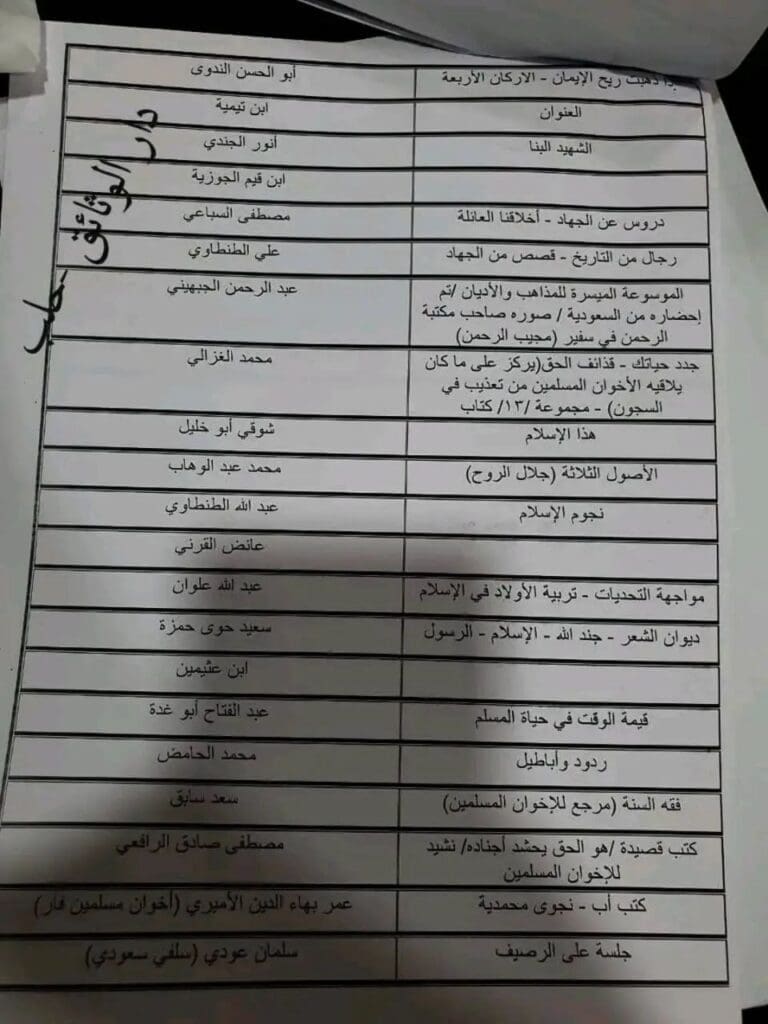 ذهبت ريح الإيمان - الاركان الأربعة أبو الحسن الندوى
العنوان ابن تيمية
الشهيد البنا أنور الجندي
ابن قيم الجوزية
دروس عن الجهاد - أخلاقنا العائلة مصطفى السباعي
رجال من التاريخ - قصص من الجهاد علي الطنطاوي
الموسوعة الميسرة للمذاهب والأديان /تم عبد الرحمن الجبهيني
إحضاره من السعودية / صوره صاحب مكتبة
الرحمن في سفير (مجيب الرحمن)
جدد حياتك - قذائف الحق(يركز على ما كان محمد الغزالي
يلاقيه الأخوان المسلمين من تعذيب في
السجون) - مجموعة /١٣/ كتاب
هذا الإسلام شوقي أبو خليل
الأصول الثلاثة (جلال الروح) محمد عبد الوهاب
نجوم الإسلام عبد الله الطنطاوي
عائض القرني
مواجهة التحديات - تربية الأولاد في الإسلام عبد الله علوان
ديوان الشعر - جند الله - الإسلام - الرسول سعيد حوى حمزة
ابن عثيمين
قيمة الوقت في حياة المسلم عبد الفتاح أبو غدة
ردود وأباطيل محمد الحامض
فقه السنة (مرجع للإخوان المسلمين) سعد سابق
كتب قصيدة /هو الحق يحشد أجناده/ نشيد مصطفى صادق الرافعي
للإخوان المسلمين
كتب أب - نجوى محمدية عمر بهاء الدين الأميري (أخوان مسلمين فار)
جلسة على الرصيف سلمان عودي (سلفي سعودي)
دار الوثائق - حلب